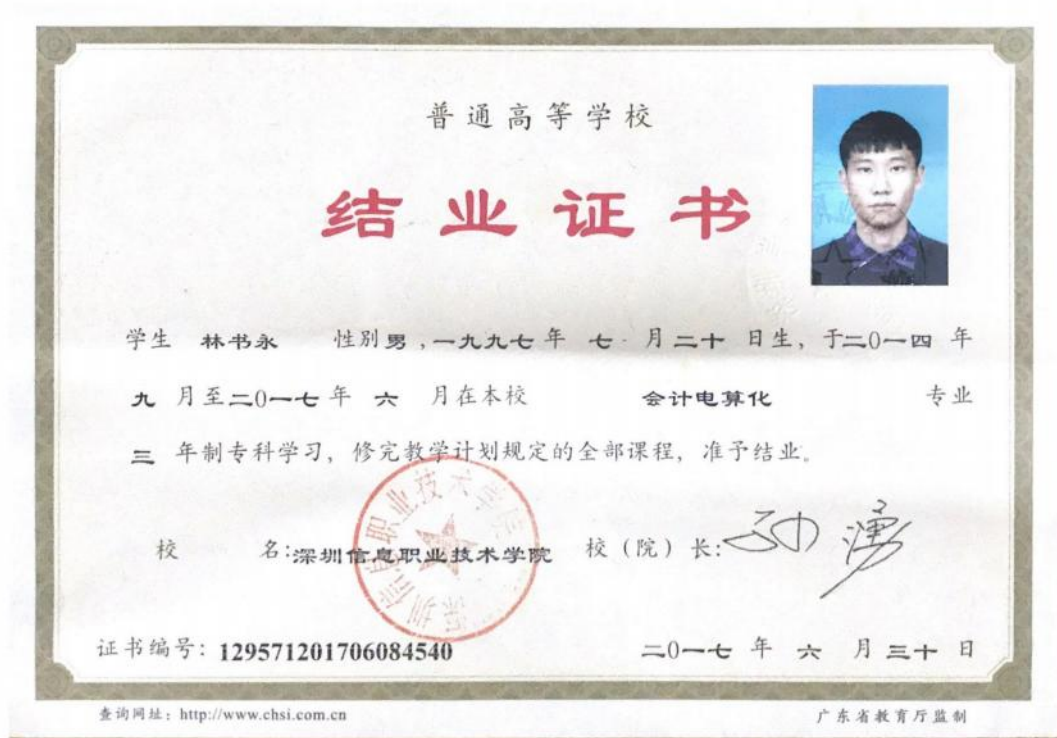 普通高等学校
结业证书
学生 林书永 性别男,一九九七年 七 月二十 日生, 于二0一四 年
九 月至二0一七年 六 月在本校 会计电算化 专业
三 年制专科学习, 修完教学计划规定的全部课程, 准予结业。
深圳信息职业技术学院
校 名:深圳信息职业技术学院 校(院)长:孙湧
证书编号: 129571201706084540 二0一七 年 六 月三十 日
查询网址: http://www.chsi.com.cn 广东省教育厅监制